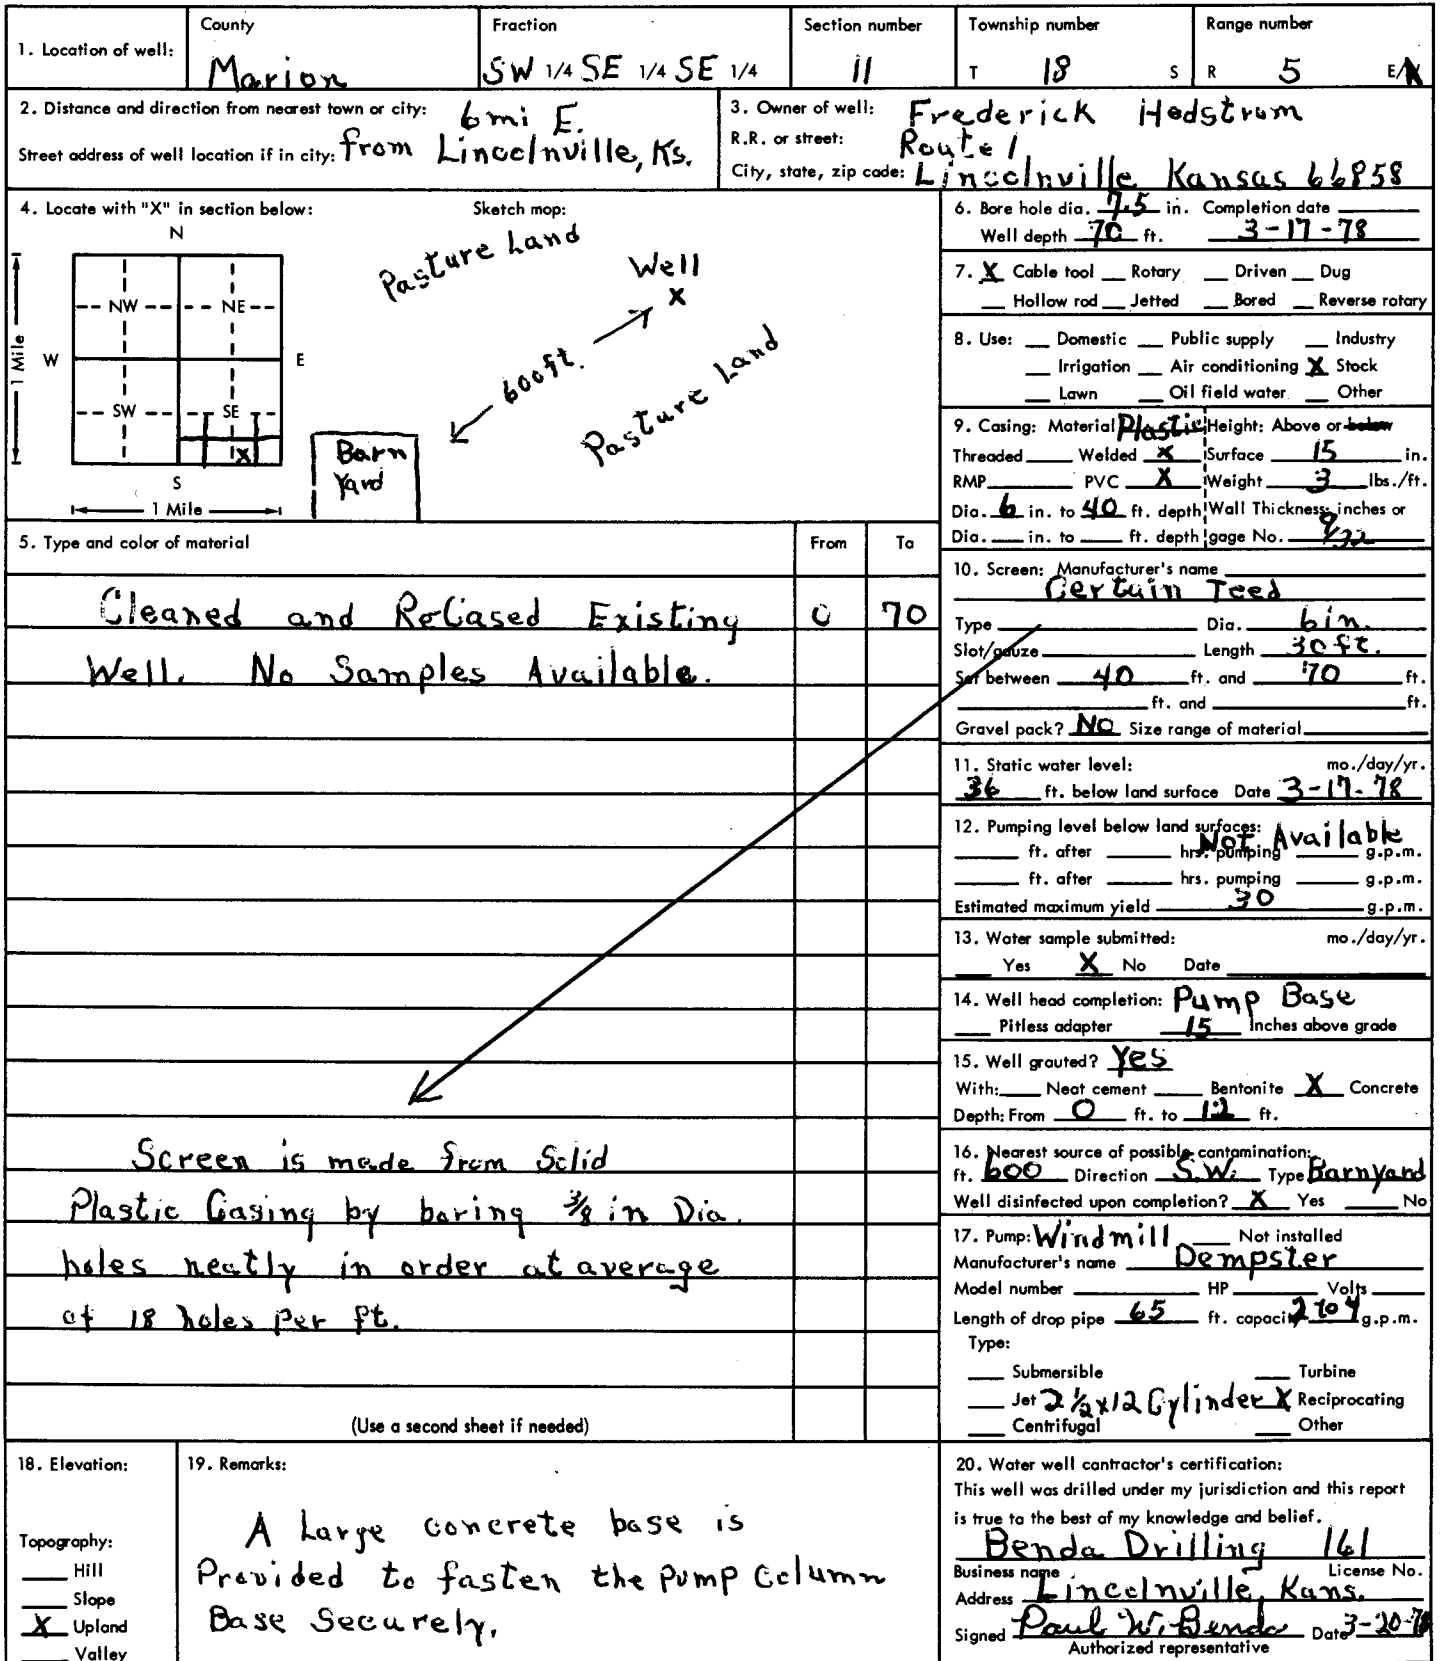 1. Location of well: County Marion Fraction SW 1/4 SE 1/4 SE 1/4 Section number 11 Township number T 18 S Range number R 5 E/
2. Distance and direction from nearest town or city: 6mi E.
Street address of well location if in city: from Lincolnville, Ks.
3. Owner of well: Frederick Hedstrom
R.R. or street: Route 1
City, state, zip code: Lincolnville Kansas 66858
4. Locate with "X" in section below: Sketch map:
N
NW NE
W E
SW SE
X
S
1 Mile
1 Mile
Pasture Land
Well
X
600ft.
Pasture Land
Barn
Yard
5. Type and color of material From To
Cleaned and ReCased Existing 0 70
Well. No Samples Available.
Screen is made from Solid
Plastic Casing by boring 3/8 in Dia.
holes neatly in order at average
of 18 holes Per ft.
(Use a second sheet if needed)
6. Bore hole dia. 7.5 in. Completion date
Well depth 70 ft. 3-17-78
7. X Cable tool Rotary Driven Dug
Hollow rod Jetted Bored Reverse rotary
8. Use: Domestic Public supply Industry
Irrigation Air conditioning X Stock
Lawn Oil field water Other
9. Casing: Material Plastic Height: Above or below
Threaded Welded X Surface 15 in.
RMP PVC X Weight 3 lbs./ft.
Dia. 6 in. to 40 ft. depth Wall Thickness: inches or
Dia. in. to ft. depth gage No. 9/32
10. Screen: Manufacturer's name
Certain Teed
Type Dia. 6in.
Slot/gauze Length 30ft.
Set between 40 ft. and 70 ft.
ft. and ft.
Gravel pack? No Size range of material
11. Static water level: mo./day/yr.
36 ft. below land surface Date 3-17-78
12. Pumping level below land surfaces: Not Available
ft. after hrs. pumping g.p.m.
ft. after hrs. pumping g.p.m.
Estimated maximum yield 30 g.p.m.
13. Water sample submitted: mo./day/yr.
Yes X No Date
14. Well head completion: Pump Base
Pitless adapter 15 Inches above grade
15. Well grouted? Yes
With: Neat cement Bentonite X Concrete
Depth: From 0 ft. to 12 ft.
16. Nearest source of possible contamination:
ft. 600 Direction S.W. Type Barnyard
Well disinfected upon completion? X Yes No
17. Pump: Windmill Not installed
Manufacturer's name Dempster
Model number HP Volts
Length of drop pipe 65 ft. capacity 2 to 4 g.p.m.
Type:
Submersible Turbine
Jet 2 1/2 x 12 Cylinder X Reciprocating
Centrifugal Other
18. Elevation:
Topography:
Hill
Slope
X Upland
Valley
19. Remarks:
A Large concrete base is
Provided to fasten the Pump Column
Base Securely.
20. Water well contractor's certification:
This well was drilled under my jurisdiction and this report
is true to the best of my knowledge and belief.
Benda Drilling 161
Business name License No.
Address Lincolnville, Kans.
Signed Paul W. Benda Date 3-20-78
Authorized representative